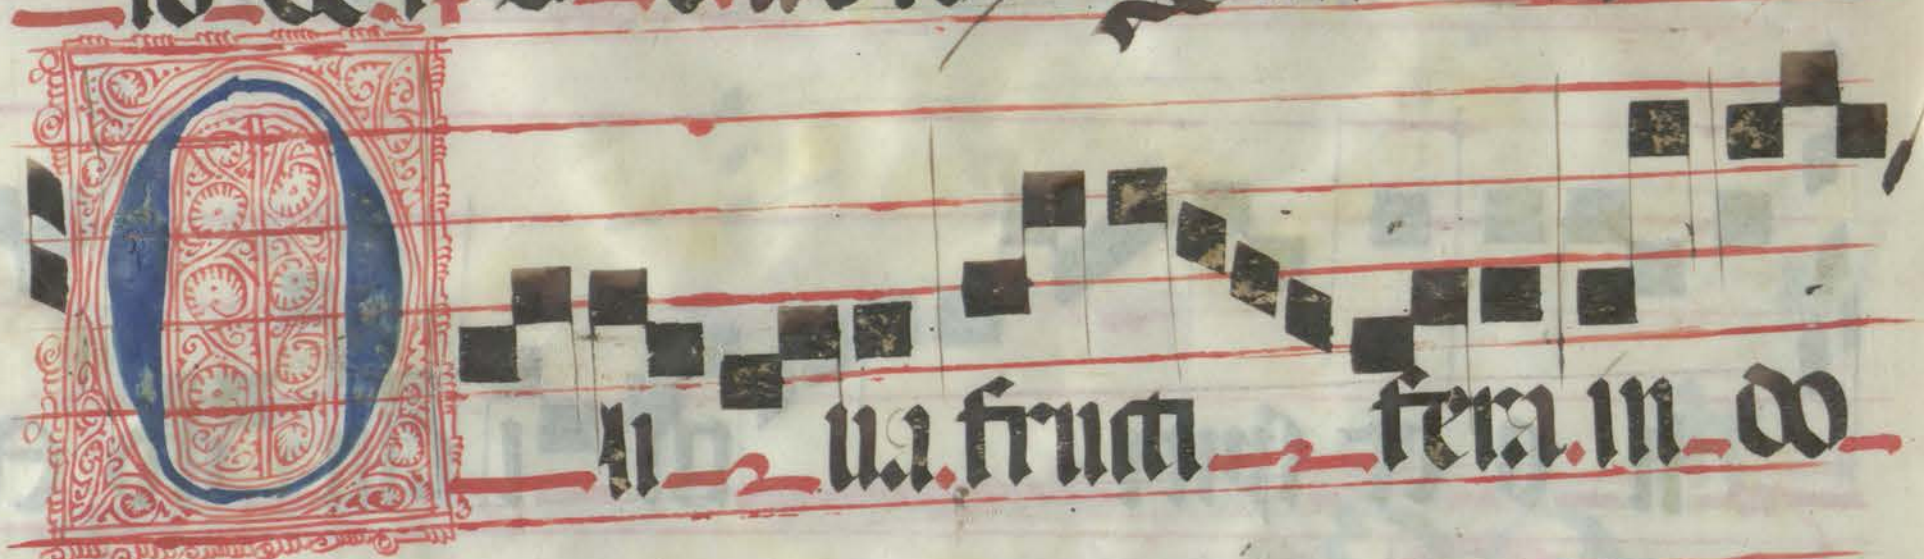 Oli ua. fructi fera. in do